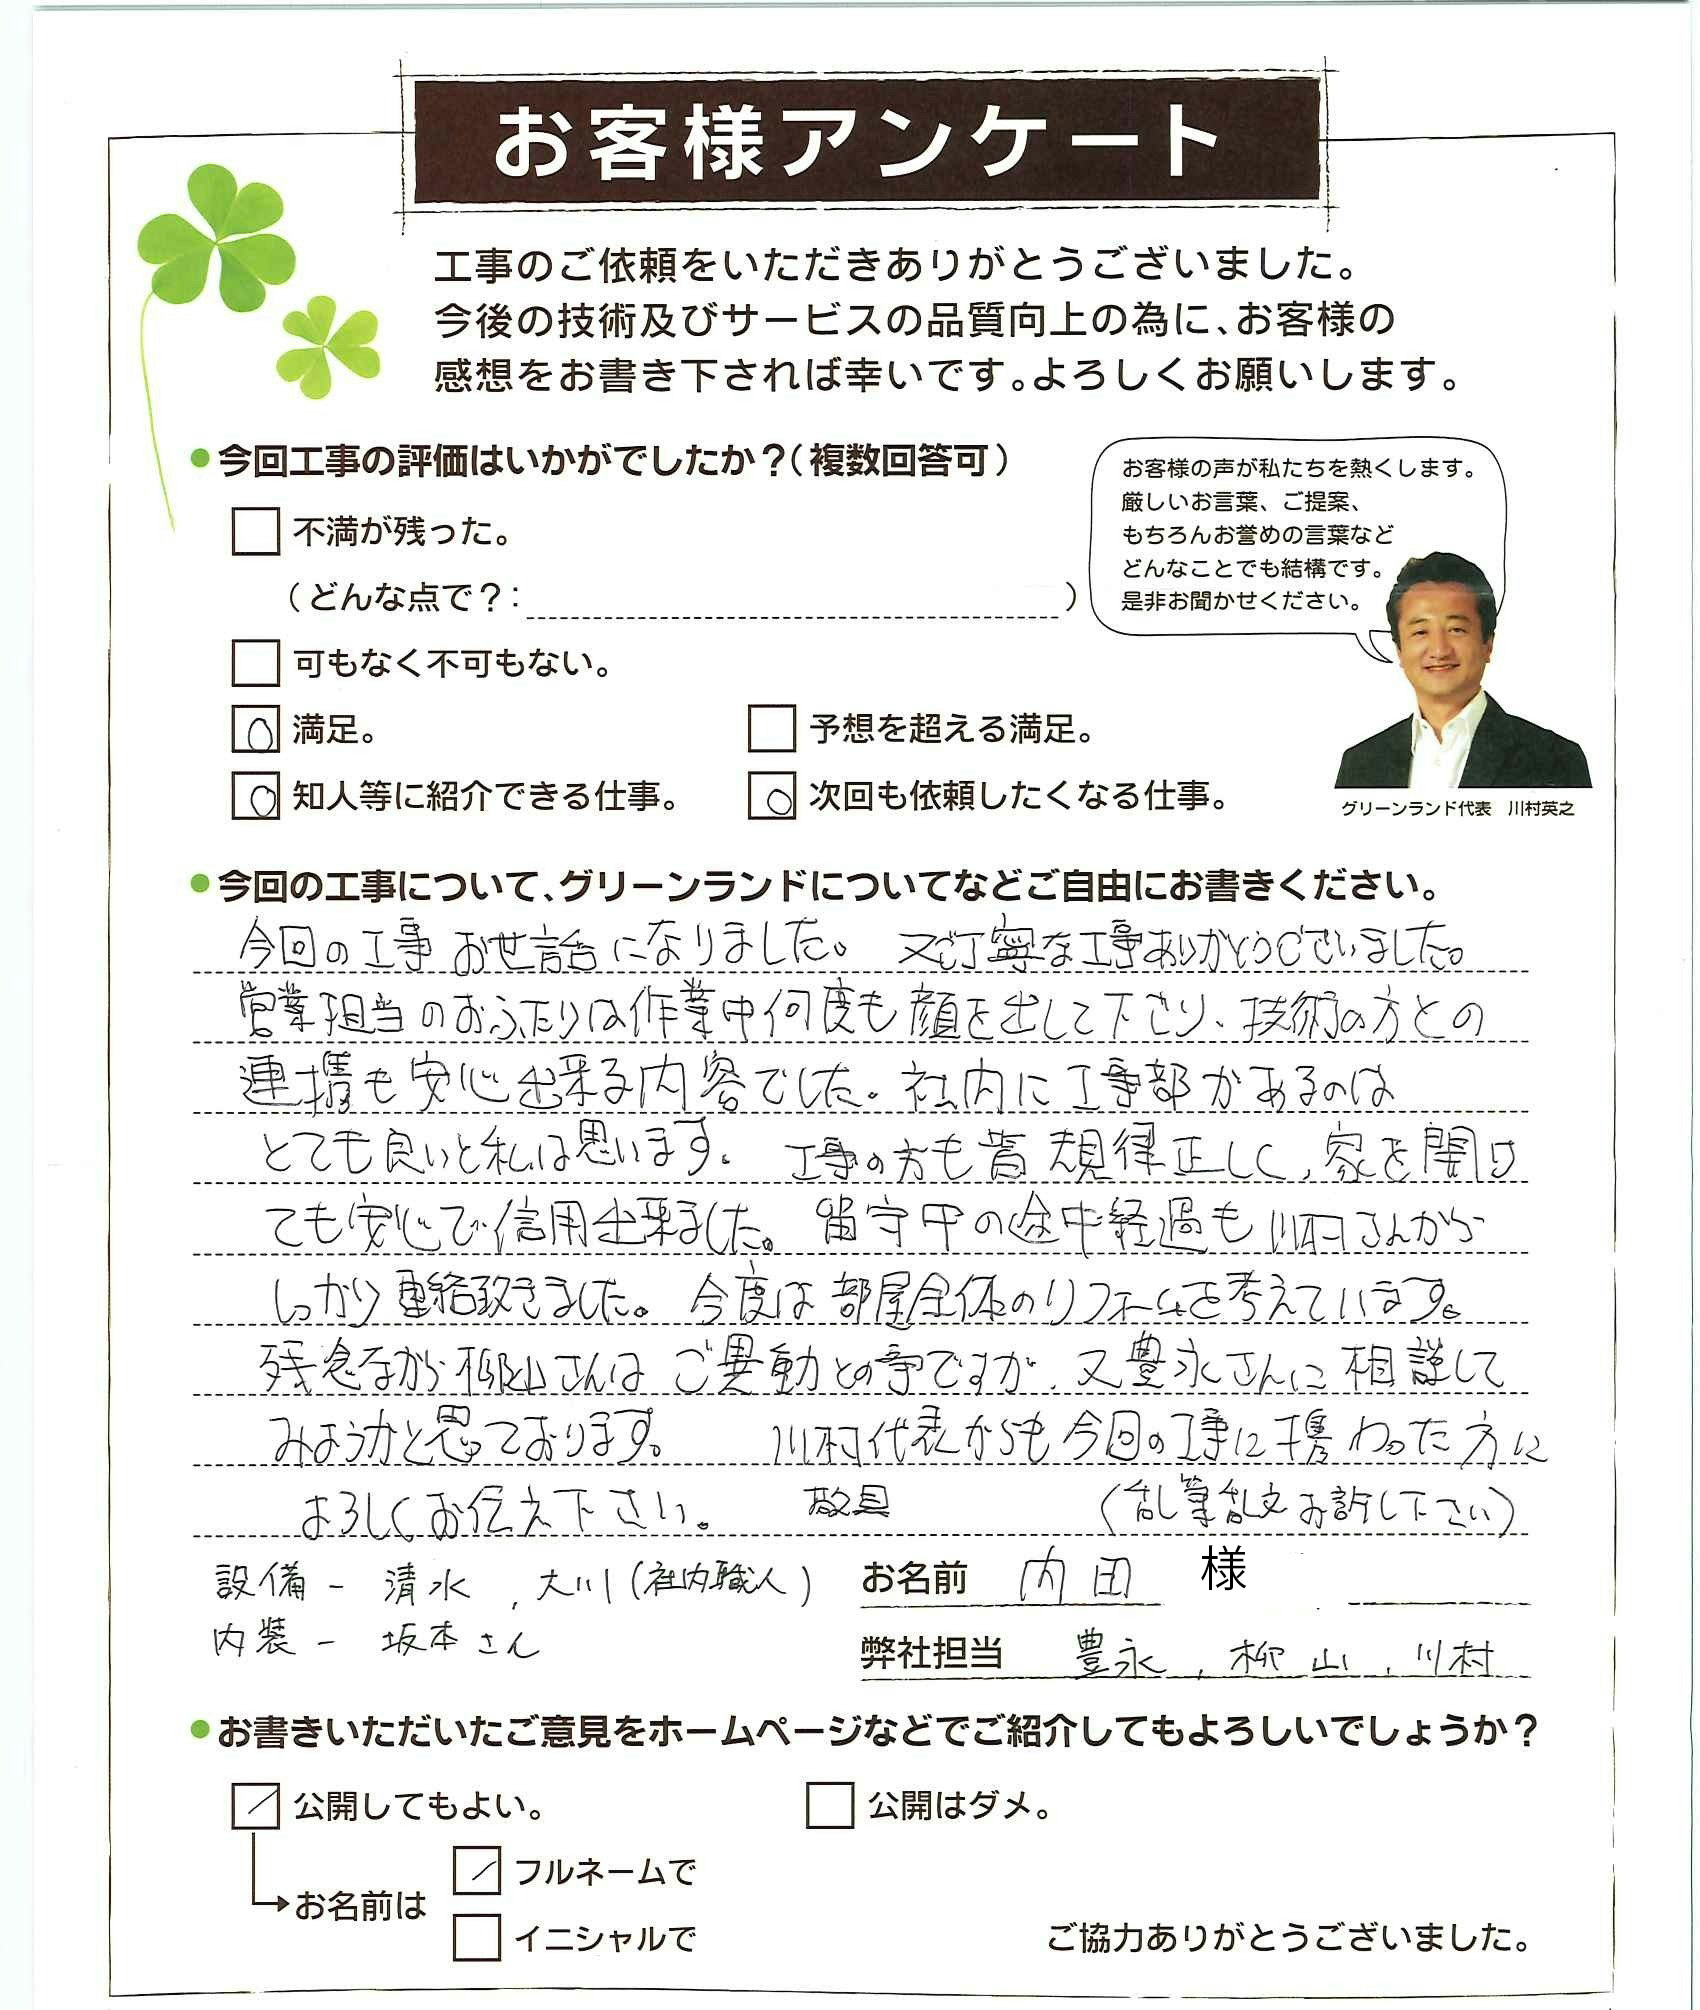 お客様アンケート
工事のご依頼をいただきありがとうございました。
今後の技術及びサービスの品質向上の為に、お客様の
感想をお書き下されば幸いです。よろしくお願いします。
●今回工事の評価はいかがでしたか?(複数回答可)
不満が残った。
(どんな点で?: )
可もなく不可もない。
○ 満足。
予想を超える満足。
○ 知人等に紹介できる仕事。
○ 次回も依頼したくなる仕事。
お客様の声が私たちを熱くします。
厳しいお言葉、ご提案、
もちろんお誉めの言葉など
どんなことでも結構です。
是非お聞かせください。
グリーンランド代表 川村英之
●今回の工事について、グリーンランドについてなどご自由にお書きください。
今回の工事 お世話になりました。 又ご丁寧な工事ありがとうございました。
営業担当のおふたりは作業中何度も顔を出して下さり、技術の方との
連携も安心出来る内容でした。社内に工事部があるのは
とても良いと私は思います。 工事の方も皆 規律正しく、家を開け
ても安心で信用出来ました。 留守中の途中経過も川村さんから
しっかり連絡頂きました。今度は部屋全体のリフォームを考えています。
残念ながら柳山さんはご異動との事ですが、又豊永さんに相談して
みようかと思っております。 川村代表からも今回の工事に携わった方に
よろしくお伝え下さい。 敬具 (乱筆乱文お許し下さい)
設備ー 清水, 大川(社内職人)
内装ー 坂本さん
お名前 内田 様
弊社担当 豊永, 柳山, 川村
●お書きいただいたご意見をホームページなどでご紹介してもよろしいでしょうか?
公開してもよい。
公開はダメ。
お名前は
フルネームで
イニシャルで
ご協力ありがとうございました。